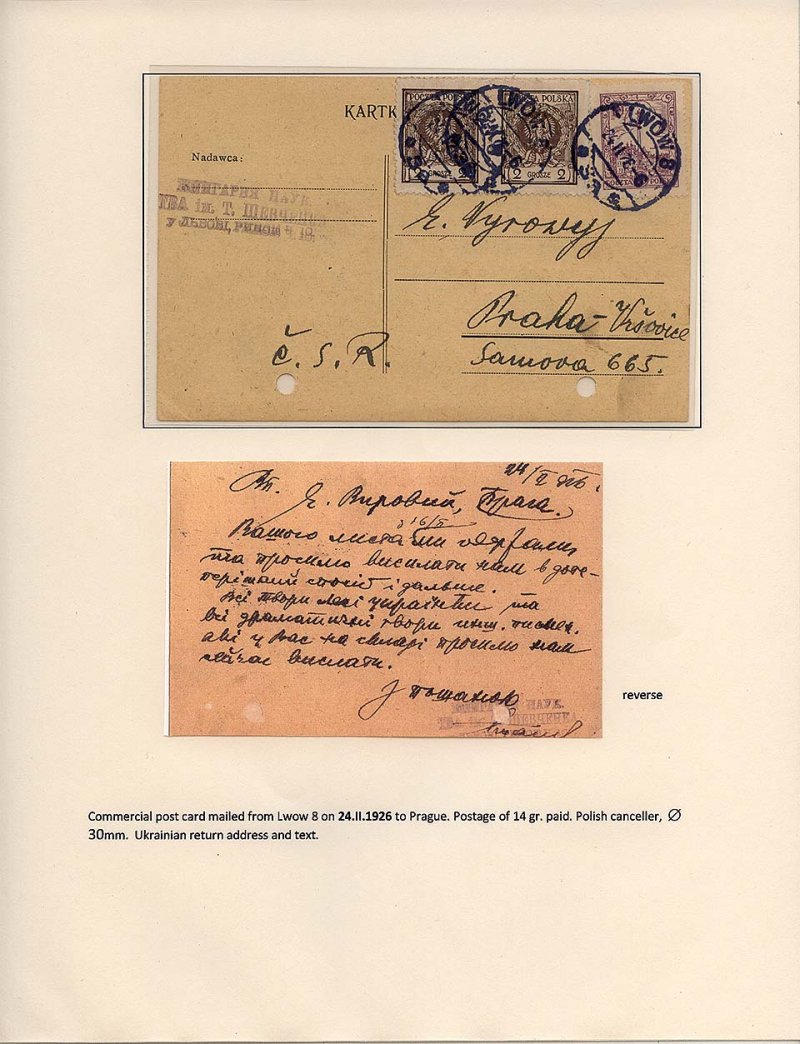 KARTK
POCZTA POLSKA
2 GROSZE 2
2 GROSZE 2
LWOW 8
24.II.26-6
Nadawca:
КНИГАРНЯ НАУК.
ТВА ім. Т. ШЕВЧЕНК
у ЛЬВОВІ, РИНОК Ч. 10.
E. Vyrowyj
Praha-Vršovice
Samova 665.
Č. S. R.
24/II 926.
Вп. Є. Вировий, Прага.
з 16/II
Вашого листа ми одержали
та просимо висилати нам в доте-
перішний спосіб і дальше.
Всі твори Лесі Українки та
всі драматичні твори инш. писмен.
які у Вас на складі просимо нам
зійчас вислати.
З пошаною
КНИГАРНЯ НАУК.
ТВА ім. Т. ШЕВЧЕНКА
reverse
Commercial post card mailed from Lwow 8 on 24.II.1926 to Prague. Postage of 14 gr. paid. Polish canceller, Ø
30mm. Ukrainian return address and text.